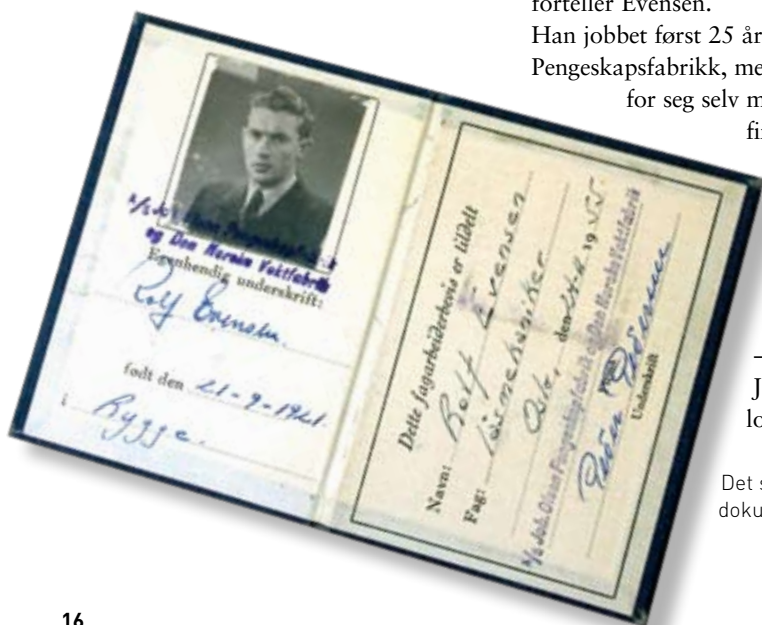 forteller Evensen.
Han jobbet først 25 år
Pengeskapsfabrikk, me
for seg selv m
fi
A/S Joh. Olsens Pengeskapsfabrik
og Den Norske Vektfabrik
Egenhendig underskrift:
Rolf Evensen.
født den 21-9-1921.
i Rygge.
Dette fagarbeiderbevis er tildelt
Navn: Rolf Evensen
Fag: låsmekaniker
Oslo, den 1955.
A/S Joh. Olsens Pengeskapsfabrik og Den Norske Vektfabrik
Underskrift
–
J
lo
Det s
doku
16